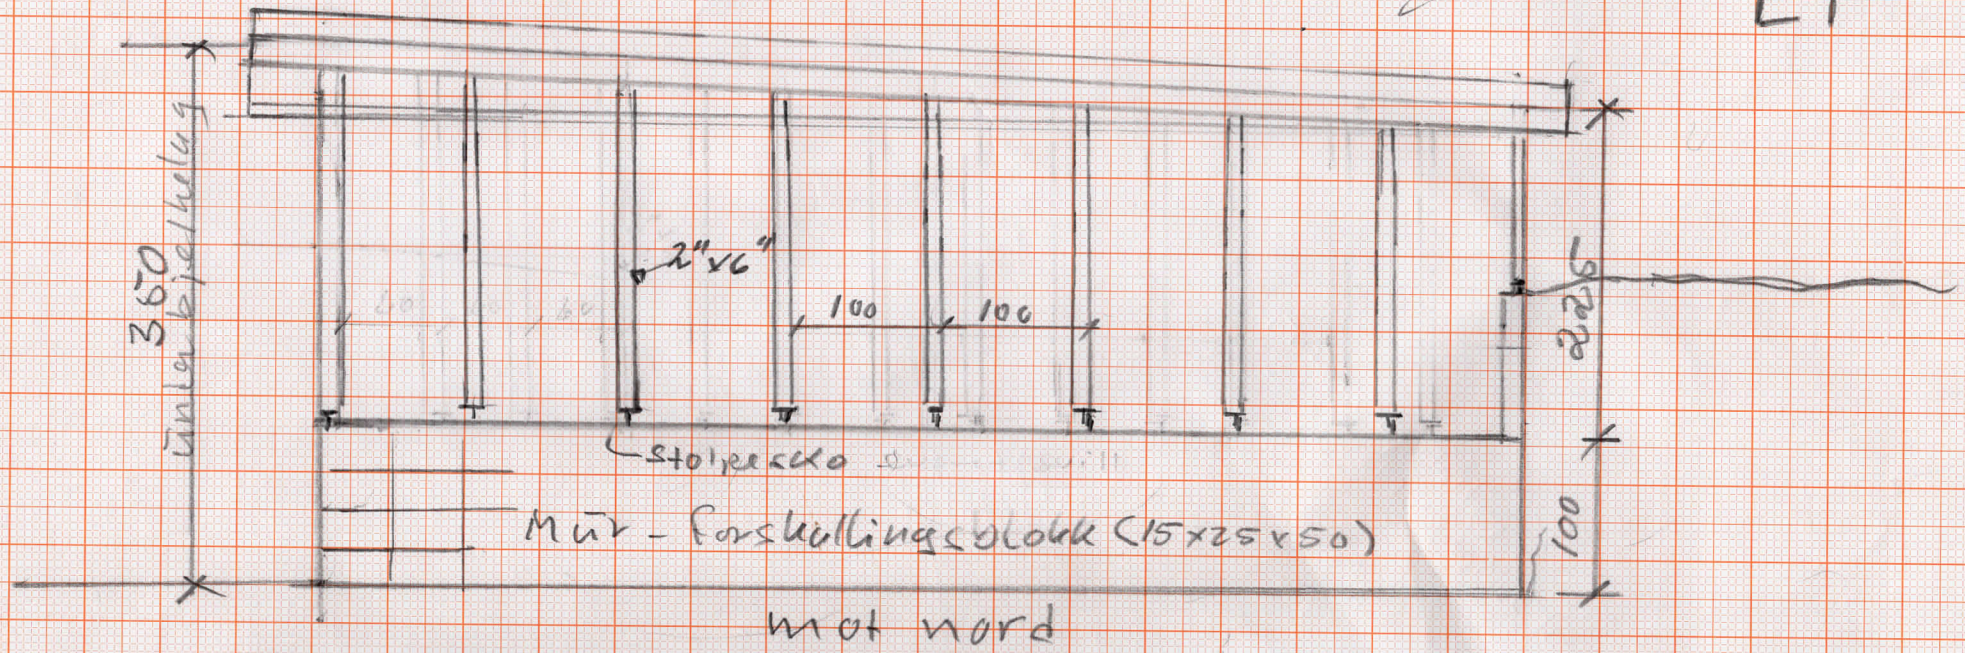 350
under bjelkelag
2"x6"
100
100
225
stolpesko
Mur - Forskallingsblokk (15x25x50)
100
mot nord